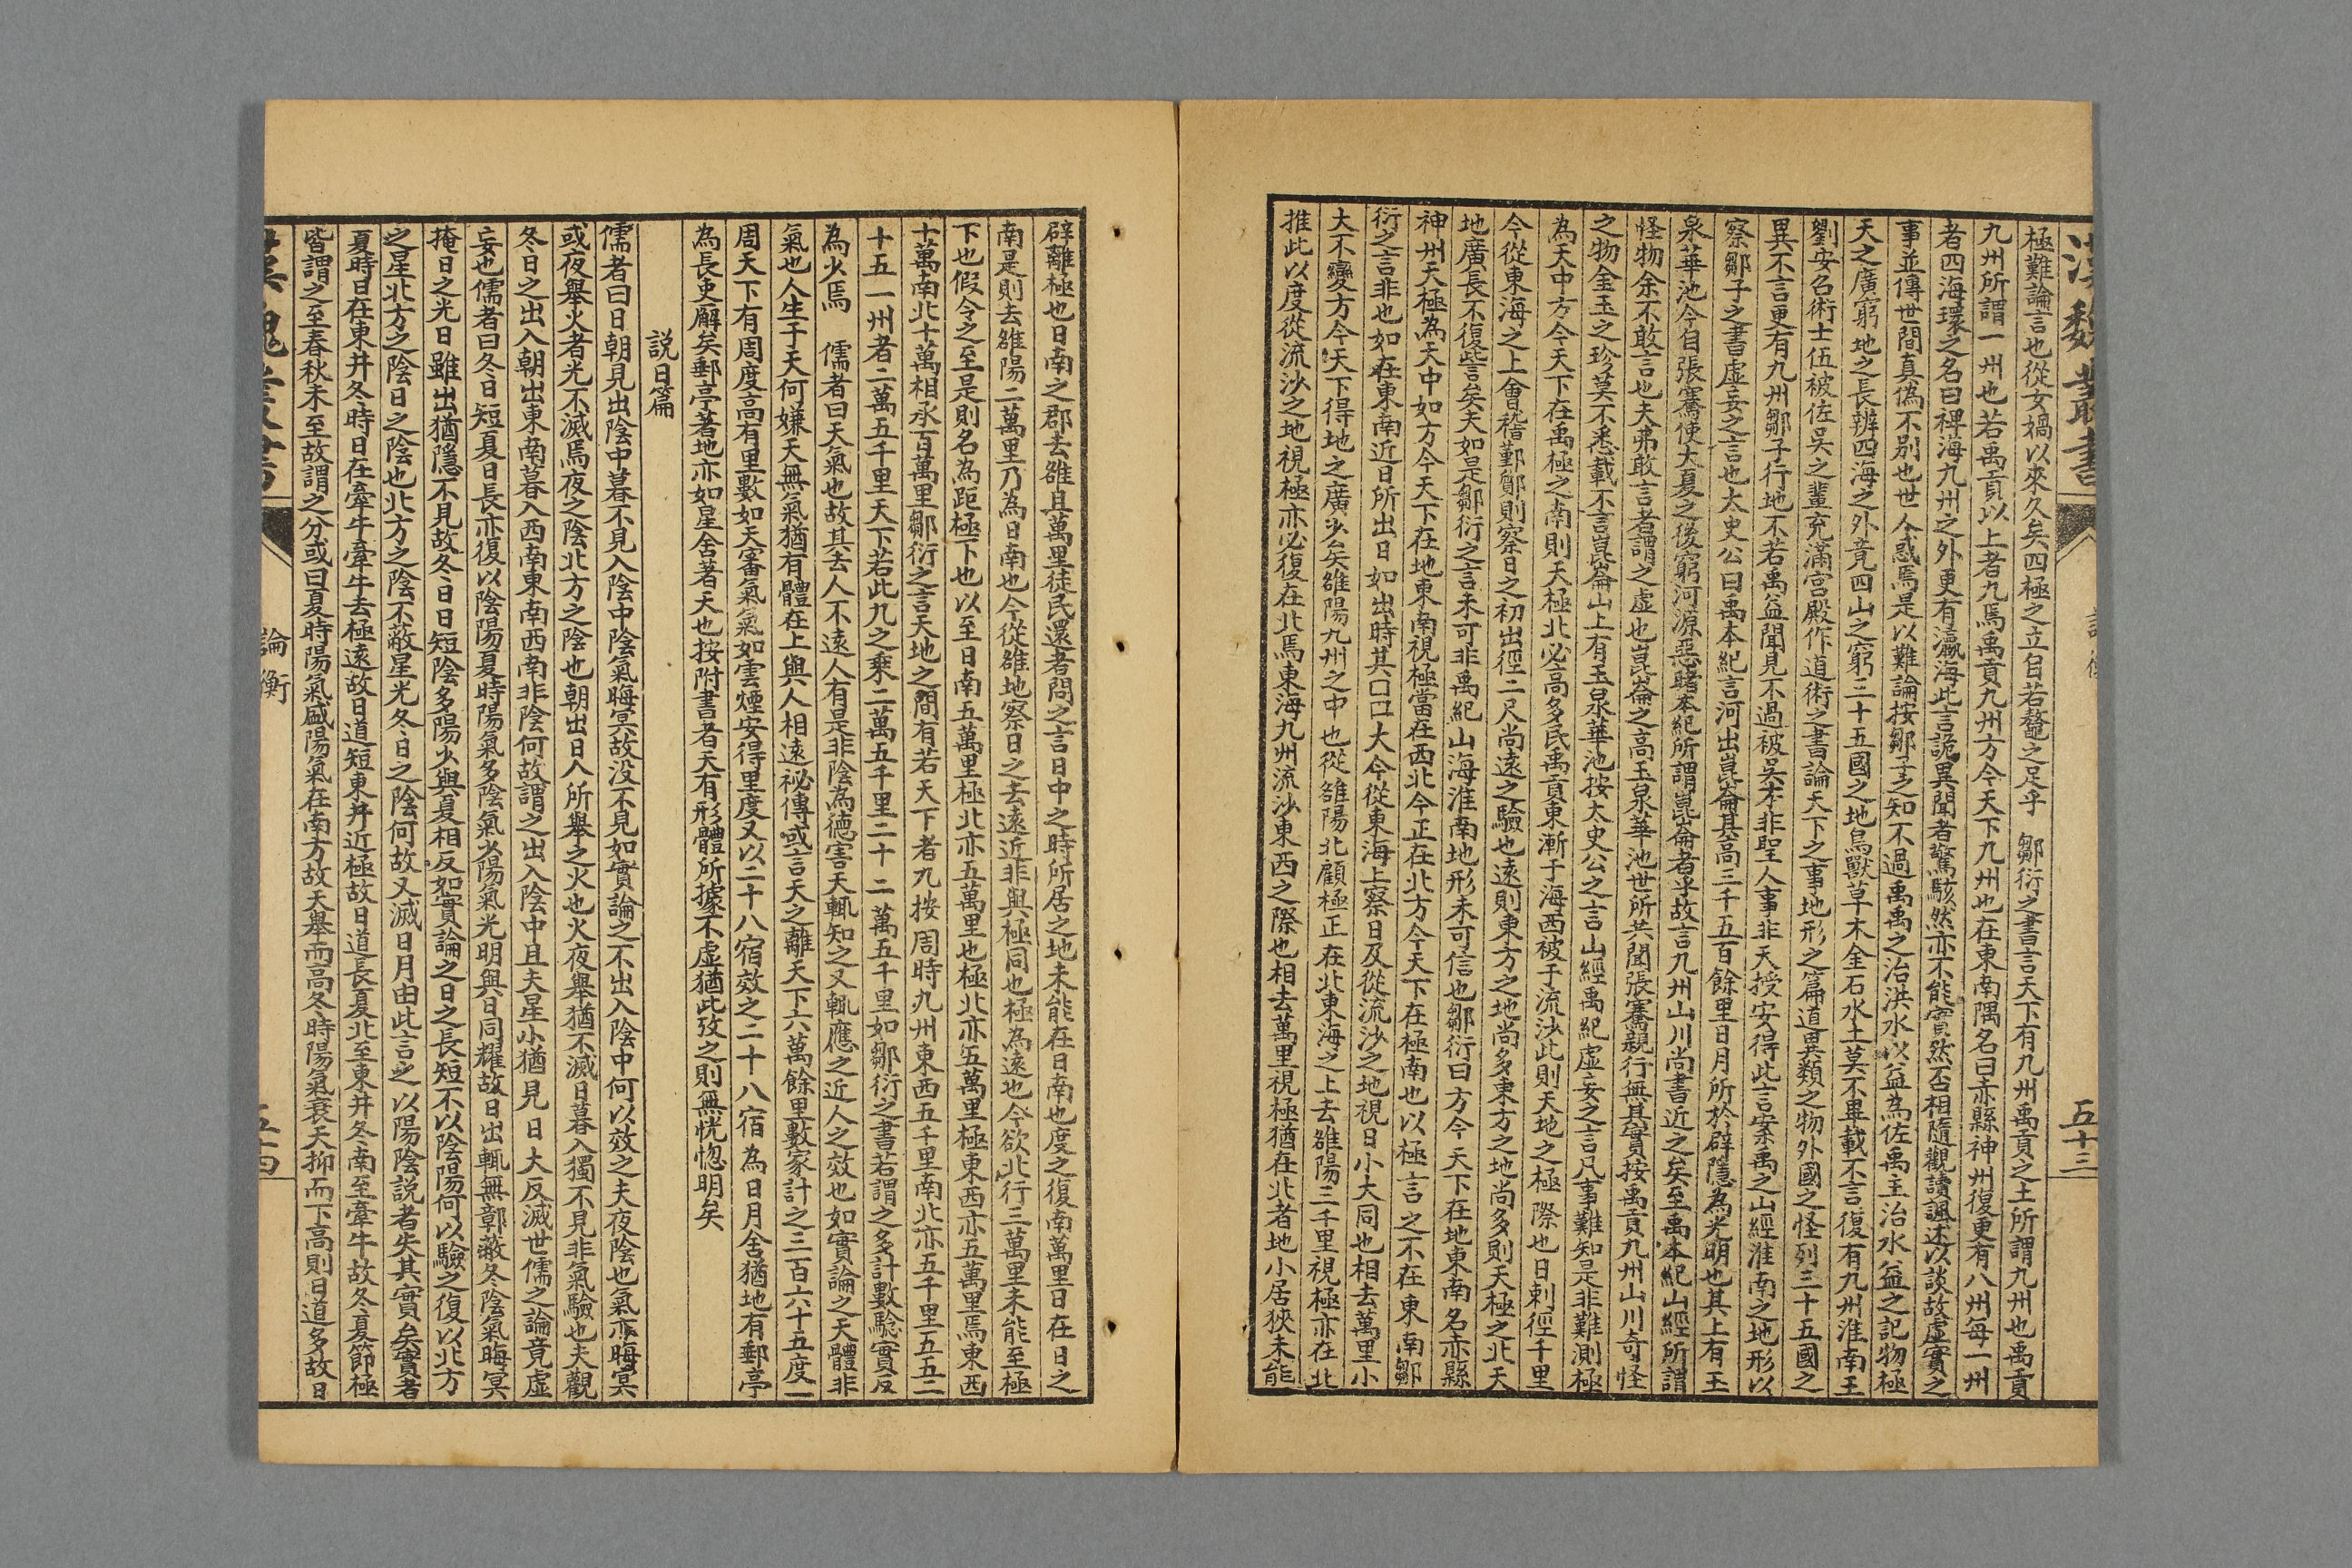 漢魏叢書
五十三
極難論言也從女媧以來久矣四極之立自若鼇之足乎　鄒衍之書言天下有九州禹貢之土所謂九州也禹貢
九州所謂一州也若禹貢以上者九焉禹貢九州方今天下九州也在東南隅名曰赤縣神州復更有八州每一州
者四海環之名曰裨海九州之外更有瀛海此言詭異聞者驚駭然亦不能實然否相隨觀讀諷述以談故虛實之
事並傳世間真偽不別也世人惑焉是以難論按鄒子之知不過禹禹之治洪水以益為佐禹主治水益之記物極
天之廣窮地之長辨四海之外竟四山之窮三十五國之地鳥獸草木金石水土莫不畢載不言復有九州淮南王
劉安召術士伍被佐吳之輩充滿宮殿作道術之書論天下之事地形之篇道異類之物外國之怪列三十五國之
異不言更有九州鄒子行地不若禹益聞見不過被吳才非聖人事非天授安得此言案禹之山經淮南之地形以
察鄒子之書虛妄之言也太史公曰禹本紀言河出崑崙其高三千五百餘里日月所於辟隱為光明也其上有玉
泉華池今自張騫使大夏之後窮河源惡睹本紀所謂崑崙者乎故言九州山川尚書近之矣至禹本紀山經所謂
怪物余不敢言也夫弗敢言者謂之虛也崑崙之高玉泉華池世所共聞張騫親行無其實按禹貢九州山川奇怪
之物金玉之珍莫不悉載不言崑崙山上有玉泉華池按太史公之言山經禹紀虛妄之言凡事難知是非難測極
為天中方今天下在禹極之南則天極北必高多民禹貢東漸于海西被于流沙此則天地之極際也日刺徑千里
今從東海之上會稽鄞鄮則察日之初出徑二尺尚遠之驗也遠則東方之地尚多東方之地尚多則天極之北天
地廣長不復訾矣夫如是鄒衍之言未可非禹紀山海淮南地形未可信也鄒衍曰方今天下在地東南名赤縣
神州天極為天中如方今天下在地東南視極當在西北今正在北方今天下在極南也以極言之不在東南鄒
衍之言非也如在東南近日所出日如出時其口口大今從東海上察日及從流沙之地視日小大同也相去萬里小
大不變方今天下得地之廣少矣雒陽九州之中也從雒陽北顧極正在北東海之上去雒陽三千里視極亦在北
推此以度從流沙之地視極亦必復在北焉東海九州流沙東西之際也相去萬里視極猶在北者地小居狹未能
辟離極也日南之郡去雒且萬里徒民還者問之言日中之時所居之地未能在日南也度之復南萬里日在日之
南是則去雒陽二萬里乃為日南也今從雒地察日之去遠近非與極同也極為遠也今欲北行三萬里未能至極
下也假令之至是則名為距極下也以至日南五萬里極北亦五萬里也極北亦五萬里極東西亦五萬里焉東西
十萬南北十萬相承百萬里鄒衍之言天地之間有若天下者九按周時九州東西五千里南北亦五千里五五二
十五一州者二萬五千里天下若此九之乘二萬五千里二十二萬五千里如鄒衍之書若謂之多計數驗實反
為少焉　儒者曰天氣也故其去人不遠人有是非陰為德害天輒知之又輒應之近人之效也如實論之天體非
氣也人生于天何嫌天無氣猶有體在上與人相遠祕傳或言天之離天下六萬餘里數家計之三百六十五度一
周天下有周度高有里數如天審氣氣如雲煙安得里度又以二十八宿效之二十八宿為日月舍猶地有郵亭
為長吏廨矣郵亭著地亦如星舍著天也按附書者天有形體所據不虛猶此攷之則無恍惚明矣
説日篇
儒者曰日朝見出陰中暮不見入陰中陰氣晦冥故沒不見如實論之不出入陰中何以效之夫夜陰也氣亦晦冥
或夜舉火者光不滅焉夜之陰北方之陰也朝出日人所舉之火也火夜舉猶不滅日暮入獨不見非氣驗也夫觀
冬日之出入朝出東南暮入西南東南西南非陰何故謂之出入陰中且夫星小猶見日大反滅世儒之論竟虛
妄也儒者曰冬日短夏日長亦復以陰陽夏時陽氣多陰氣少陽氣光明與日同耀故日出輒無鄣蔽冬陰氣晦冥
掩日之光日雖出猶隱不見故冬日日短陰多陽少與夏相反如實論之日之長短不以陰陽何以驗之復以北方
之星北方之陰日之陰也北方之陰不蔽星光冬日之陰何故又滅日月由此言之以陽陰説者失其實矣實者
夏時日在東井冬時日在牽牛牽牛去極遠故日道短東井近極故日道長夏北至東井冬南至牽牛故冬夏節極
皆謂之至春秋未至故謂之分或曰夏時陽氣盛陽氣在南方故天舉而高冬時陽氣衰天抑而下高則日道多故日
論衡
五十四